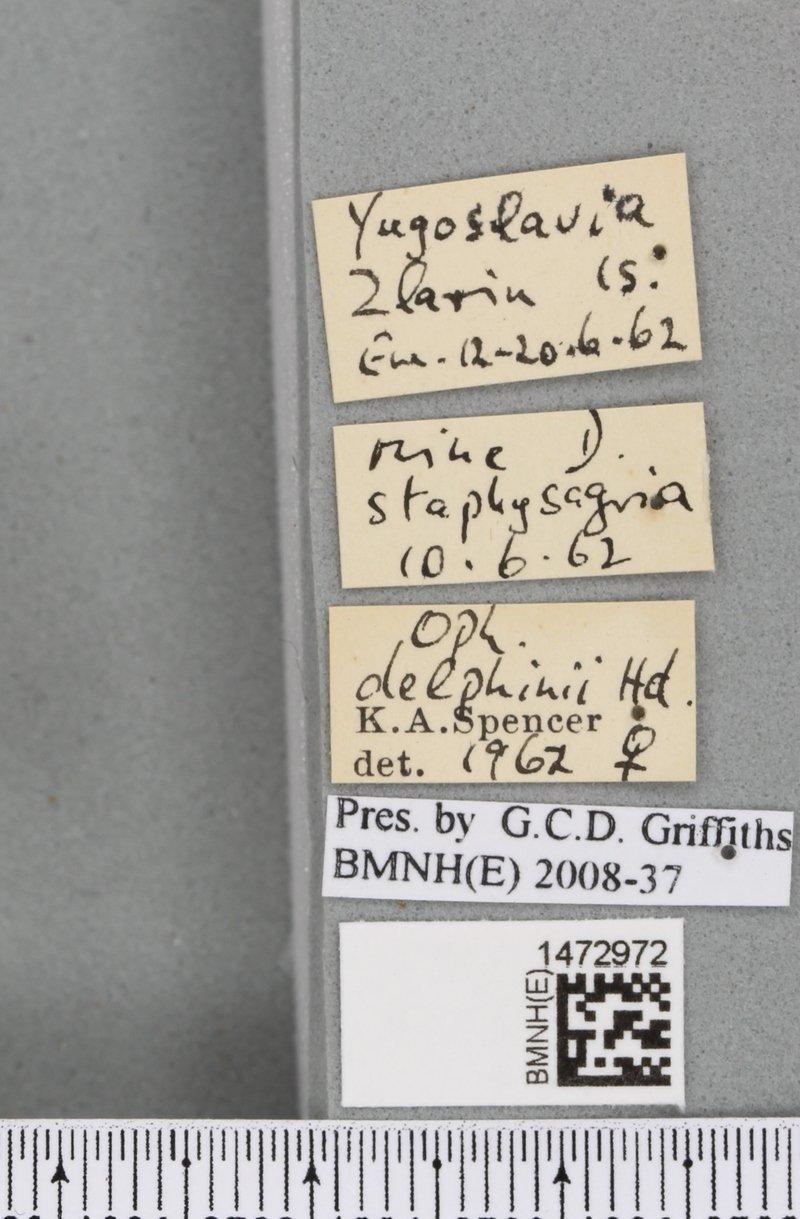 Yugoslavia
Zlarin Is.
Em. 12-20.6.62
mine D.
staphysagria
10.6.62
Oph.
delphinii Hd.
K.A.Spencer
det. 1962 ♀
Pres. by G.C.D. Griffiths
BMNH(E) 2008-37
1472972
BMNH(E)